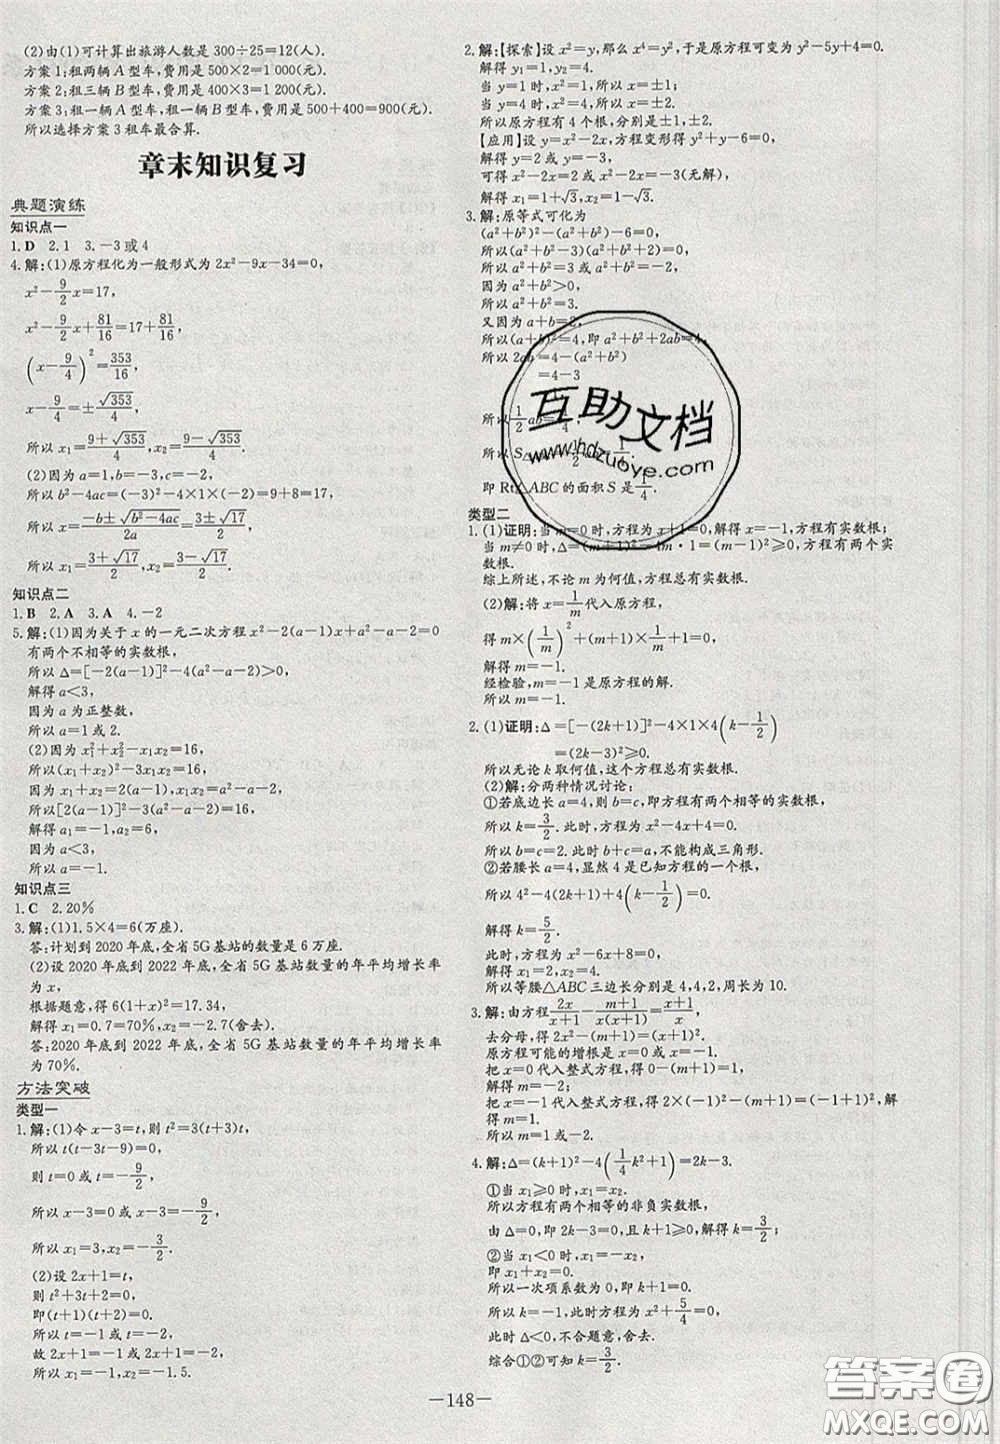 (2)由(1)可计算出旅游人数是300÷25=12(人).
方案1;租两辆A型车,费用是500×2=1 000(元).
方案2;租三辆B型车,费用是400×3=1 200(元).
方案3;租一辆A型车,租一辆B型车,费用是500+400=900(元).
所以选择方案3租车最合算.
章末知识复习
典题演练
知识点一
1.D 2.1 3.-3或4
4.解:(1)原方程化为一般形式为2x²-9x-34=0,
x²-9/2x=17,
x²-9/2x+81/16=17+81/16,
(x-9/4)²=353/16,
x-9/4=±√353/4,
所以x₁=(9+√353)/4,x₂=(9-√353)/4.
(2)因为a=1,b=-3,c=-2,
所以b²-4ac=(-3)²-4×1×(-2)=9+8=17,
所以x=(-b±√(b²-4ac))/2a=(3±√17)/2,
所以x₁=(3+√17)/2,x₂=(3-√17)/2.
知识点二
1.B 2.A 3.A 4.-2
5.解:(1)因为关于x的一元二次方程x²-2(a-1)x+a²-a-2=0
有两个不相等的实数根,
所以Δ=[-2(a-1)]²-4(a²-a-2)>0,
解得a<3,
因为a为正整数,
所以a=1或2.
(2)因为x₁²+x₂²-x₁x₂=16,
所以(x₁+x₂)²-3x₁x₂=16,
所以[2(a-1)]²-3(a²-a-2)=16,
解得a₁=-1,a₂=6,
因为a<3,
所以a=-1.
知识点三
1.C 2.20%
3.解:(1)1.5×4=6(万座).
答:计划到2020年底,全省5G基站的数量是6万座.
(2)设2020年底到2022年底,全省5G基站数量的年平均增长率
为x,
根据题意,得6(1+x)²=17.34,
解得x₁=0.7=70%,x₂=-2.7(舍去).
答:2020年底到2022年底,全省5G基站数量的年平均增长率
为70%.
方法突破
类型一
1.解:(1)令x-3=t,则t²=3(t+3)t,
所以t(t-3t-9)=0,
则t=0或t=-9/2,
所以x-3=0或x-3=-9/2,
所以x₁=3,x₂=-3/2.
(2)设2x+1=t,
则t²+3t+2=0,
即(t+1)(t+2)=0.
所以t=-1或t=-2.
故2x+1=-1或2x+1=-2,
所以x₁=-1或x₂=-1.5.
2.解:【探索】设x²=y,那么x⁴=y²,于是原方程可变为y²-5y+4=0.
解得y₁=1,y₂=4.
当y=1时,x²=1,所以x=±1;
当y=4时,x²=4,所以x=±2.
所以原方程有4个根,分别是±1,±2.
【应用】设y=x²-2x,方程变形得y²+y-6=0,
解得y=2或y=-3,
可得x²-2x=2或x²-2x=-3(无解),
解得x₁=1+√3,x₂=1-√3.
3.解:原等式可化为
(a²+b²)²-(a²+b²)-6=0,
所以(a²+b²-3)(a²+b²+2)=0,
所以a²+b²=3或a²+b²=-2,
因为a²+b²>0,
所以a²+b²=3.
又因为a+b=2,
所以(a+b)²=4,即a²+b²+2ab=4,
所以2ab=4-(a²+b²)
=4-3
所以1/2ab=1/4.
即Rt△ABC的面积S是1/4.
类型二
1.(1)证明:当m=0时,方程为x+1=0,解得x=-1,有实数根;
当m≠0时,Δ=(m+1)²-4m·1=(m-1)²≥0,方程有两个实
数根.
综上所述,不论m为何值,方程总有实数根.
(2)解:将x=1/m代入原方程,
得m×(1/m)²+(m+1)×1/m+1=0.
解得m=-1.
经检验,m=-1是原方程的解,
所以m=-1.
2.(1)证明:Δ=[-(2k+1)]²-4×1×4(k-1/2)
=(2k-3)²≥0.
所以无论k取何值,这个方程总有实数根.
(2)解:分两种情况讨论:
①若底边长a=4,则b=c,即方程有两个相等的实数根,
所以k=3/2.此时,方程为x²-4x+4=0,
所以b=c=2.此时b+c=a,不能构成三角形.
②若腰长a=4,显然4是已知方程的一个根,
所以4²-4(2k+1)+4(k-1/2)=0,
解得k=5/2.
此时,方程为x²-6x+8=0,
解得x₁=2,x₂=4.
所以等腰△ABC三边长分别是4,4,2,周长为10.
3.解:由方程2x/(x+1)-(m+1)/(x(x+1))=(x+1)/x,
去分母,得2x²-(m+1)=(x+1)².
原方程可能的增根是x=0或x=-1.
把x=0代入整式方程,得0-(m+1)=1,
解得m=-2;
把x=-1代入整式方程,得2×(-1)²-(m+1)=(-1+1)².
解得m=1.
所以m=-2或m=1.
4.解:Δ=(k+1)²-4(1/4k²+1)=2k-3.
①当x₁≥0时,x₁=x₂,
所以方程有两个相等的非负实数根,
由Δ=0,即2k-3=0,且k+1≥0,解得k=3/2;
②当x₁<0时,x₂=-x₁,
即x₁+x₂=0.
所以一次项系数为0,即k+1=0.
所以k=-1,此时方程为x²+5/4=0,
此时Δ<0,不合题意,舍去.
综合①②可知k=3/2.
-148-
互助文档
www.hdzuoye.com
答案圈
MXQE.COM